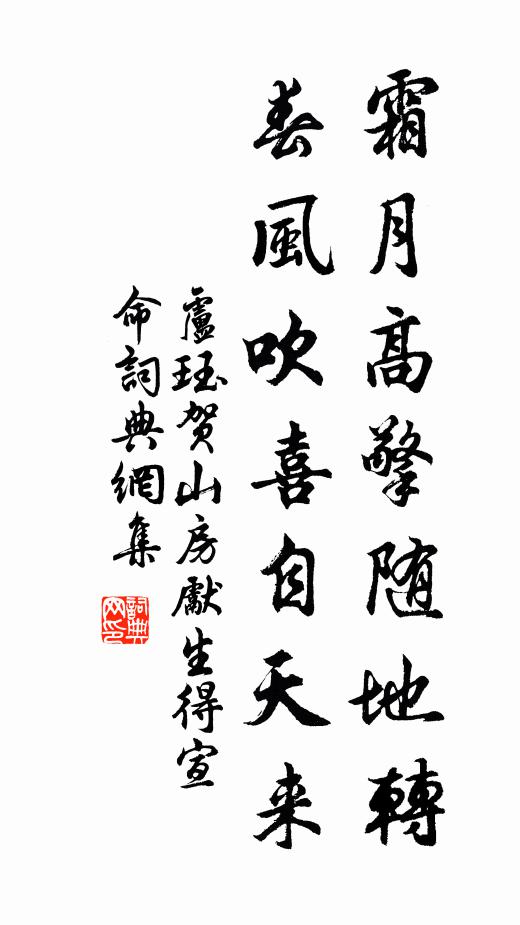 霜月高擎随地轉
春風吹喜自天来
盧珏賀山房獻生得宣
命詞典網集
詞典网印